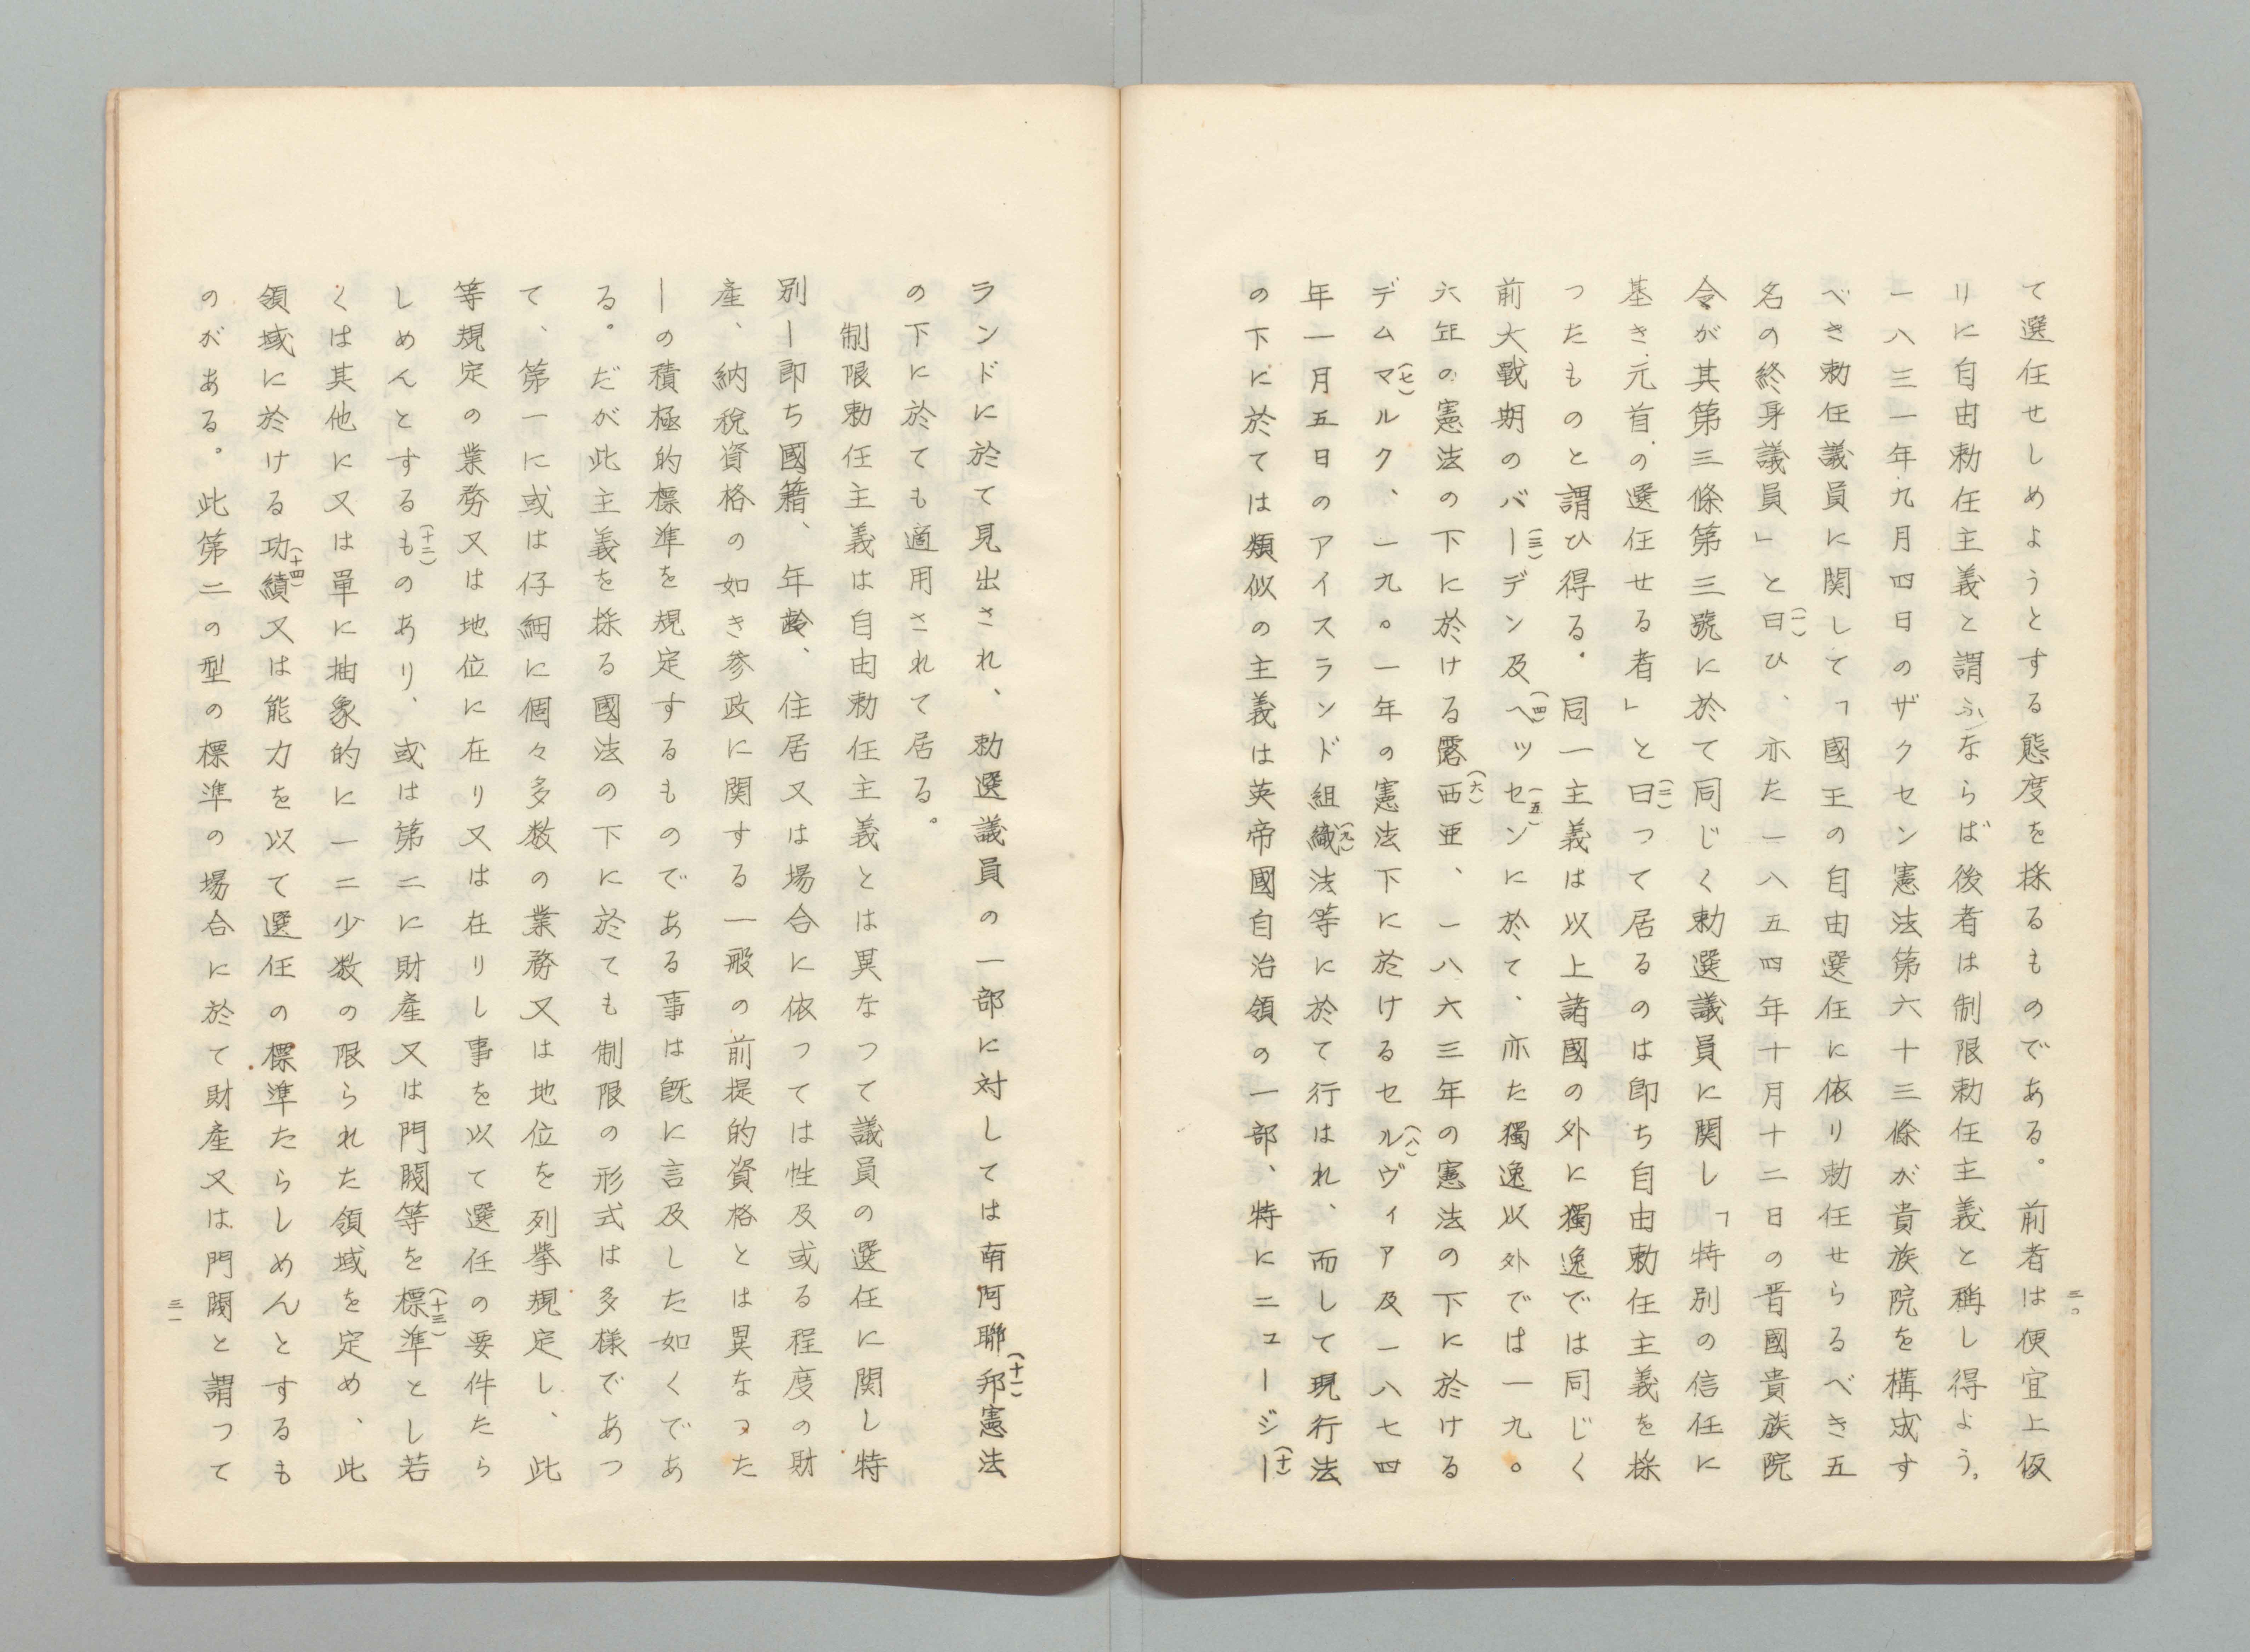 三〇
て選任せしめようとする態度を採るものである。前者は便宜上仮
りに自由勅任主義と謂ふならば後者は制限勅任主義と稱し得よう。
一八三一年九月四日のザクセン憲法第六十三條が貴族院を構成す
べき勅任議員に関して「國王の自由選任に依り勅任せらるべき五
名の終身議員」と曰(一)ひ、亦た一八五四年十月十二日の普國貴族院
令が其第三條第三號に於て同じく勅選議員に関し「特別の信任に
基き元首の選任せる者」と曰(二)つて居るのは卽ち自由勅任主義を採
つたものと謂ひ得る。同一主義は以上諸國の外に獨逸では同じく
前大戰期のバー(三)デン及ヘ(四)ッセ(五)ンに於て、亦た獨逸以外では一九〇
六年の憲法の下に於ける露西(六)亜、一八六三年の憲法の下に於ける
デムマ(七)ルク、一九〇一年の憲法下に於けるセル(八)ヴィア及一八七四
年一月五日のアイスランド組織(九)法等に於て行はれ、而して現行法
の下に於ては類似の主義は英帝國自治領の一部、特にニュージー(十)
ランドに於て見出され、勅選議員の一部に対しては南阿聯邦(十一)憲法
の下に於ても適用されて居る。
制限勅任主義は自由勅任主義とは異なつて議員の選任に関し特
別ー卽ち國籍、年齡、住居又は場合に依つては性及或る程度の財
產、納稅資格の如き参政に関する一般の前提的資格とは異なつた
ーの積極的標準を規定するものである事は既に言及した如くであ
る。だが此主義を採る國法の下に於ても制限の形式は多樣であつ
て、第一に或は仔細に個々多数の業務又は地位を列挙規定し、此
等規定の業務又は地位に在り又は在りし事を以て選任の要件たら
しめんとするも(十二)のあり、或は第二に財產又は門閥等を標(十三)準とし若
くは其他に又は單に抽象的に一二少数の限られた領域を定め、此
領域に於ける功績(十四)又は能力を以て選任の標準たらしめんとするも
のがある。此第二の型の標準の場合に於て財產又は門閥と謂つて
三一